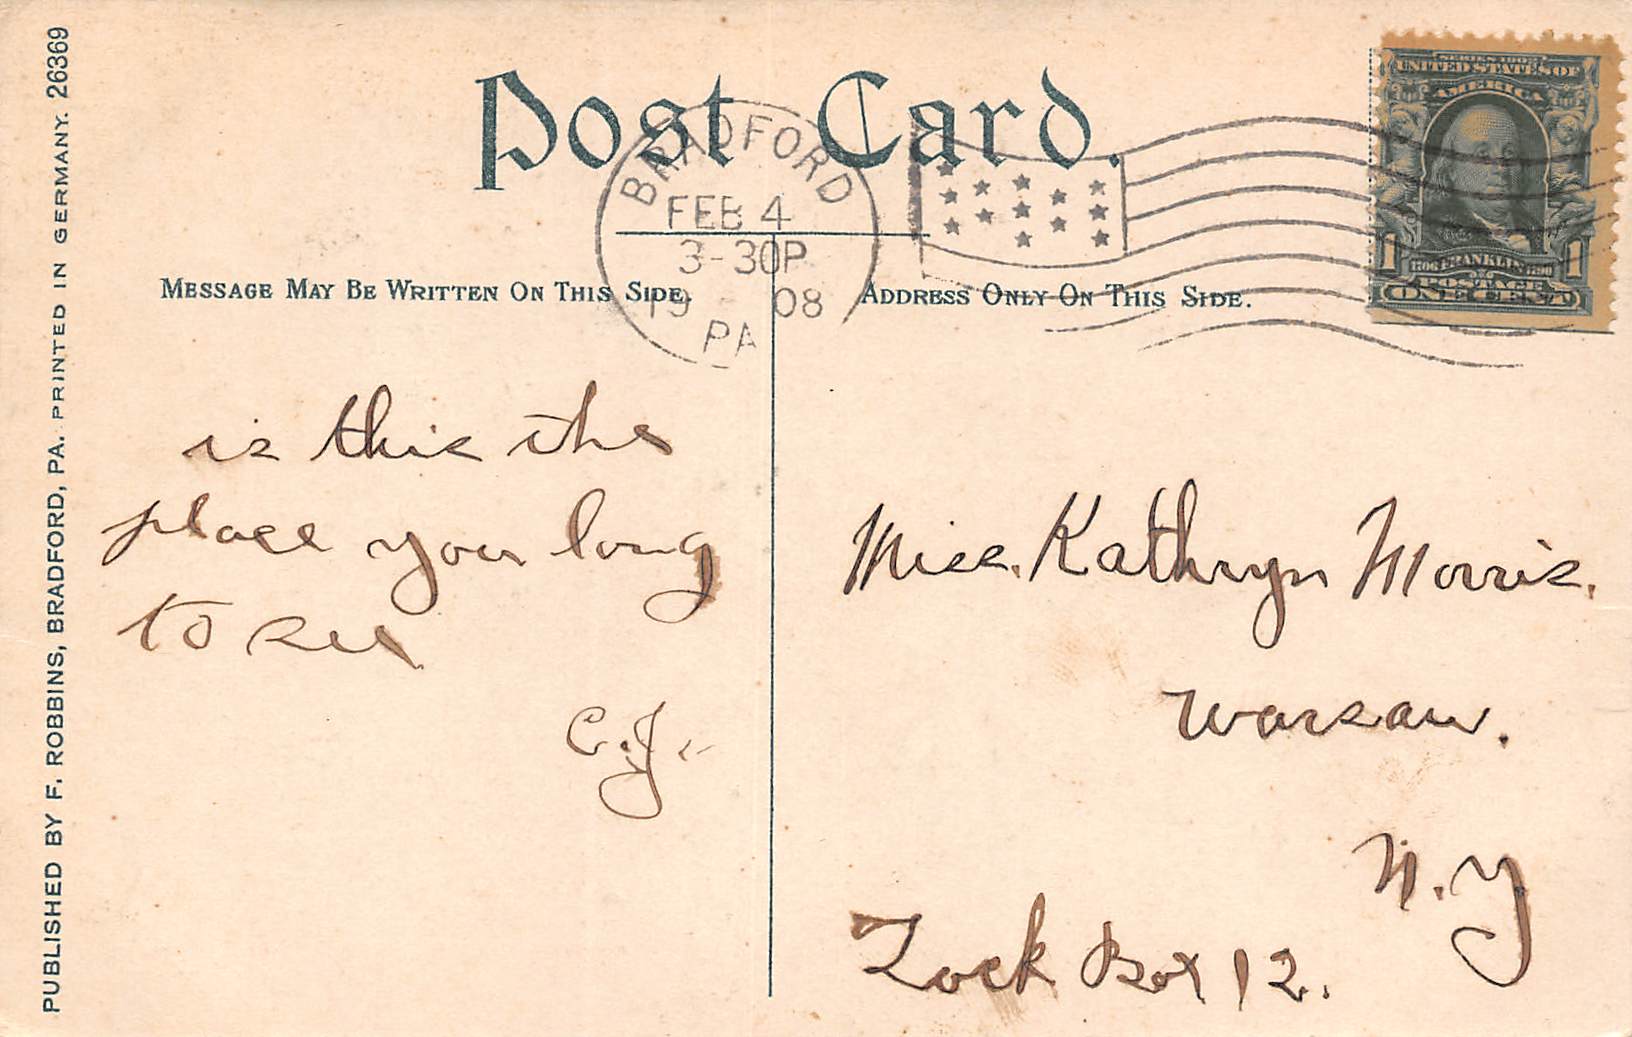 Post Card.
BRADFORD
FEB 4
3-30P
19 08
PA
MESSAGE MAY BE WRITTEN ON THIS SIDE.
ADDRESS ONLY ON THIS SIDE.
SERIES 1902
UNITED STATES OF
AMERICA
1 FRANKLIN 1
POSTAGE
ONE CENT
is this the
place your long
to see
C.J.
Miss. Kathryn Morris.
Warsaw.
N.Y
Lock Box 12.
PUBLISHED BY F. ROBBINS, BRADFORD, PA. PRINTED IN GERMANY. 26369